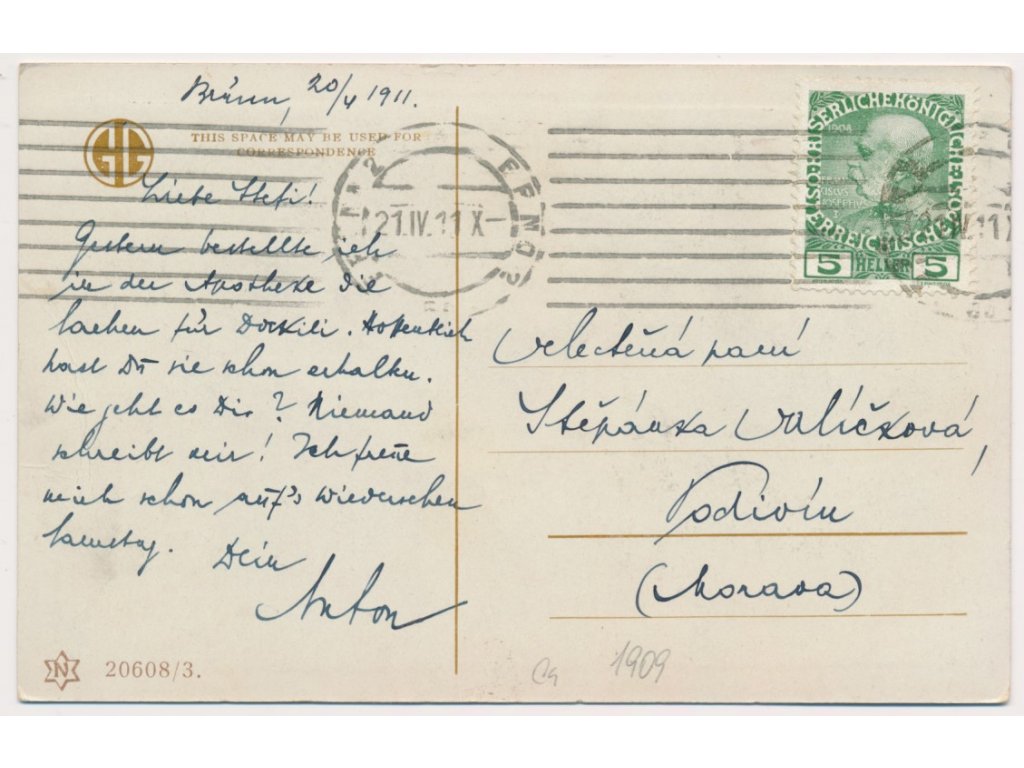 Brünn, 20/4 1911.
THIS SPACE MAY BE USED FOR
CORRESPONDENCE
Liebe Stefi!
Gestern bestellte ich
in der Apotheke die
Sachen für Dockili. Hoffentlich
hast Du sie schon erhalten.
Wie geht es Dir? Niemand
schreibt mir! Ich freue
mich schon auf's Wiedersehen
Samstag. Dein
Anton
N 20608/3.
21.IV.11 X
1908
5 HELLER 5
Velectěná paní
Štěpánka Valíčková,
Podivín
(Morava)
1909